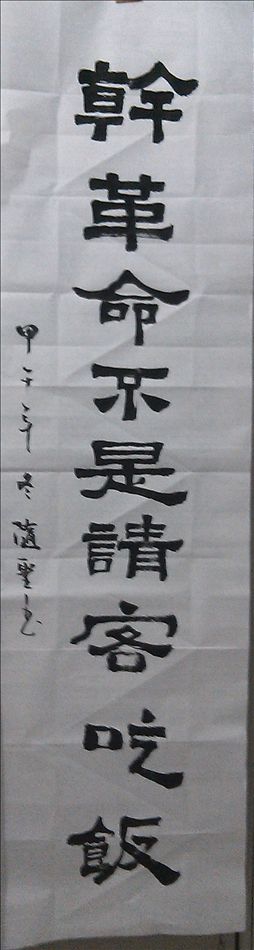 幹革命不是請客吃飯
甲午年冬隨聖書